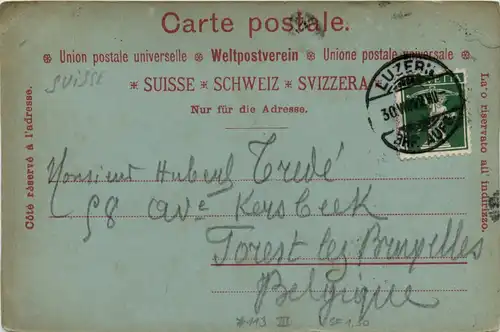 Carte postale.
* Union postale universelle * Weltpostverein * Unione postale universale *
SUISSE
* SUISSE * SCHWEIZ * SVIZZERA
Nur für die Adresse.
LUZERN
HELVETIA
Côté réservé à l'adresse.
Lato riservato all'indirizzo.
Monsieur Hubert Tredé
98 Ave Kersbeek
Forest lez Bruxelles
Belgique
#113 III